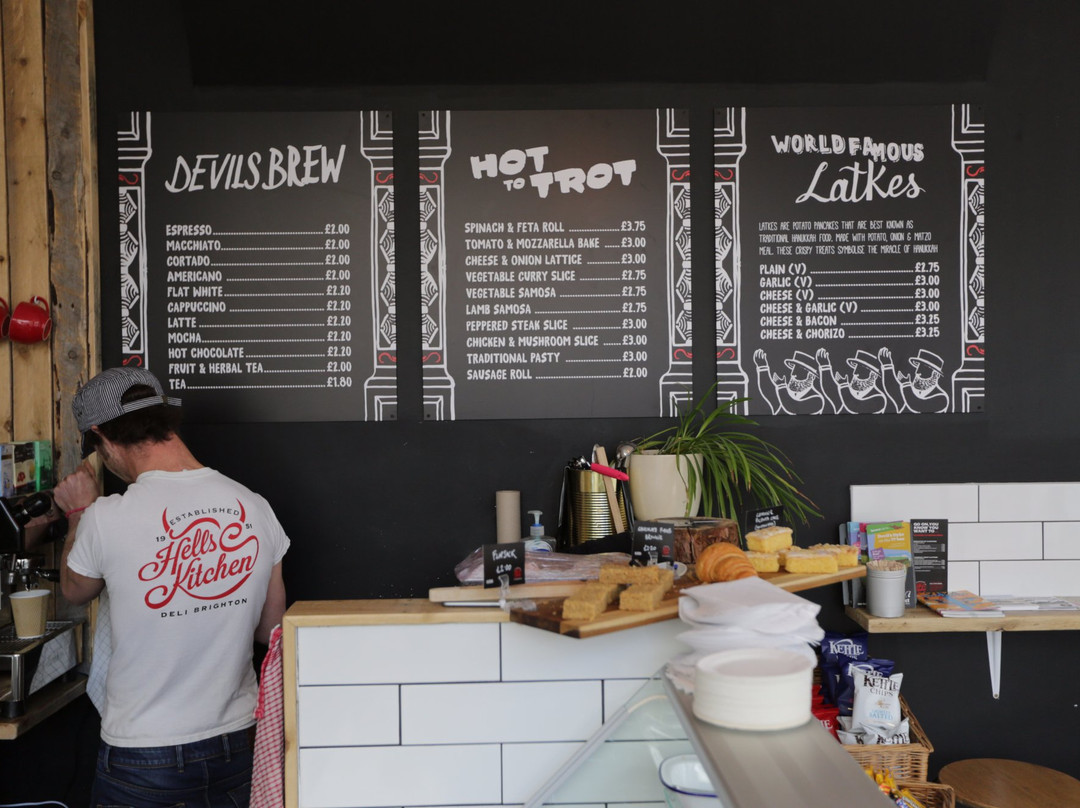 DEVILS BREW
ESPRESSO £2.00
MACCHIATO £2.00
CORTADO £2.00
AMERICANO £2.00
FLAT WHITE £2.20
CAPPUCCINO £2.20
LATTE £2.20
MOCHA £2.20
HOT CHOCOLATE £2.20
FRUIT & HERBAL TEA £2.00
TEA £1.80
HOT
TO TROT
SPINACH & FETA ROLL £3.75
TOMATO & MOZZARELLA BAKE £3.00
CHEESE & ONION LATTICE £3.00
VEGETABLE CURRY SLICE £2.75
VEGETABLE SAMOSA £2.75
LAMB SAMOSA £2.75
PEPPERED STEAK SLICE £3.00
CHICKEN & MUSHROOM SLICE £3.00
TRADITIONAL PASTY £3.00
SAUSAGE ROLL £2.00
WORLD FAMOUS
Latkes
LATKES ARE POTATO PANCAKES THAT ARE BEST KNOWN AS
TRADITIONAL HANUKKAH FOOD. MADE WITH POTATO, ONION & MATZO
MEAL. THESE CRISPY TREATS SYMBOLISE THE MIRACLE OF HANUKKAH
PLAIN (V) £2.75
GARLIC (V) £3.00
CHEESE (V) £3.00
CHEESE & GARLIC (V) £3.00
CHEESE & BACON £3.25
CHEESE & CHORIZO £3.25
ESTABLISHED
19 51
Hells
Kitchen
DELI BRIGHTON
FLAPJACK
£2.00
£2.50
KETTLE
KETTLE
CHIPS